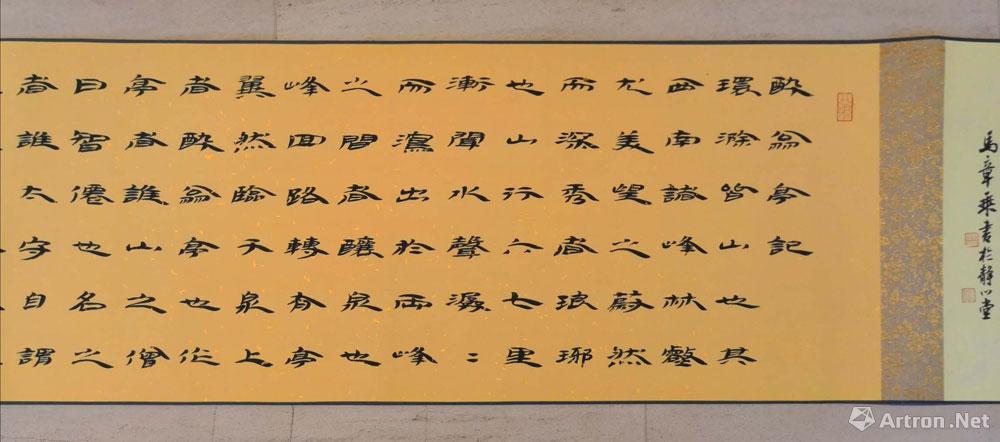 馬章乘書於静心堂
醉翁亭記
環滁皆山也其
西南諸峰林壑
尤美望之蔚然
而深秀者琅琊
也山行六七里
漸聞水聲潺〻
而瀉出於兩峰
之間者釀泉也
峰回路轉有亭
翼然臨于泉上
者醉翁亭也作
亭者誰山之僧
曰智僊也名之
者誰太守自謂
Artron.Net